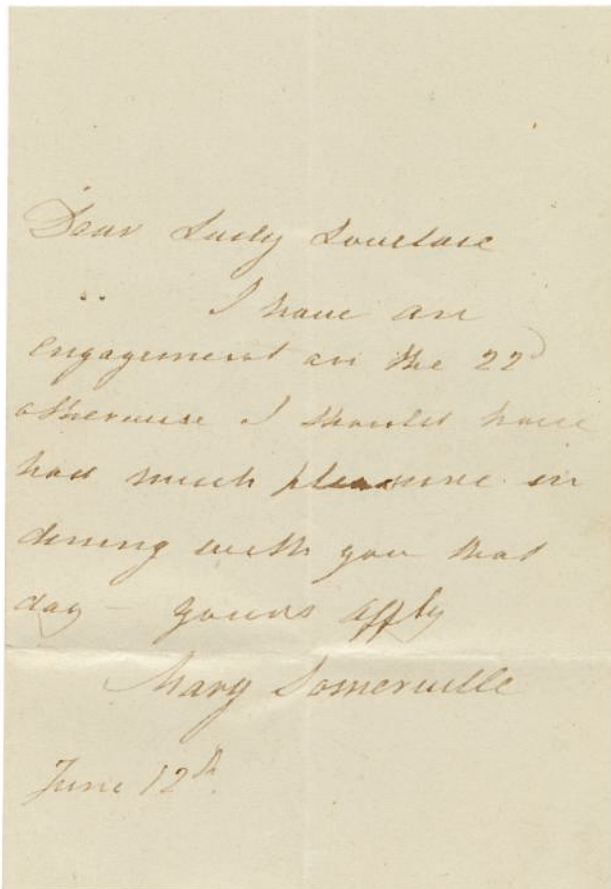 Dear Lady Lovelace
I have an
engagement on the 22d
otherwise I should have
had much pleasure in
dining with you that
day – yours affly
Mary Somerville
June 12th.